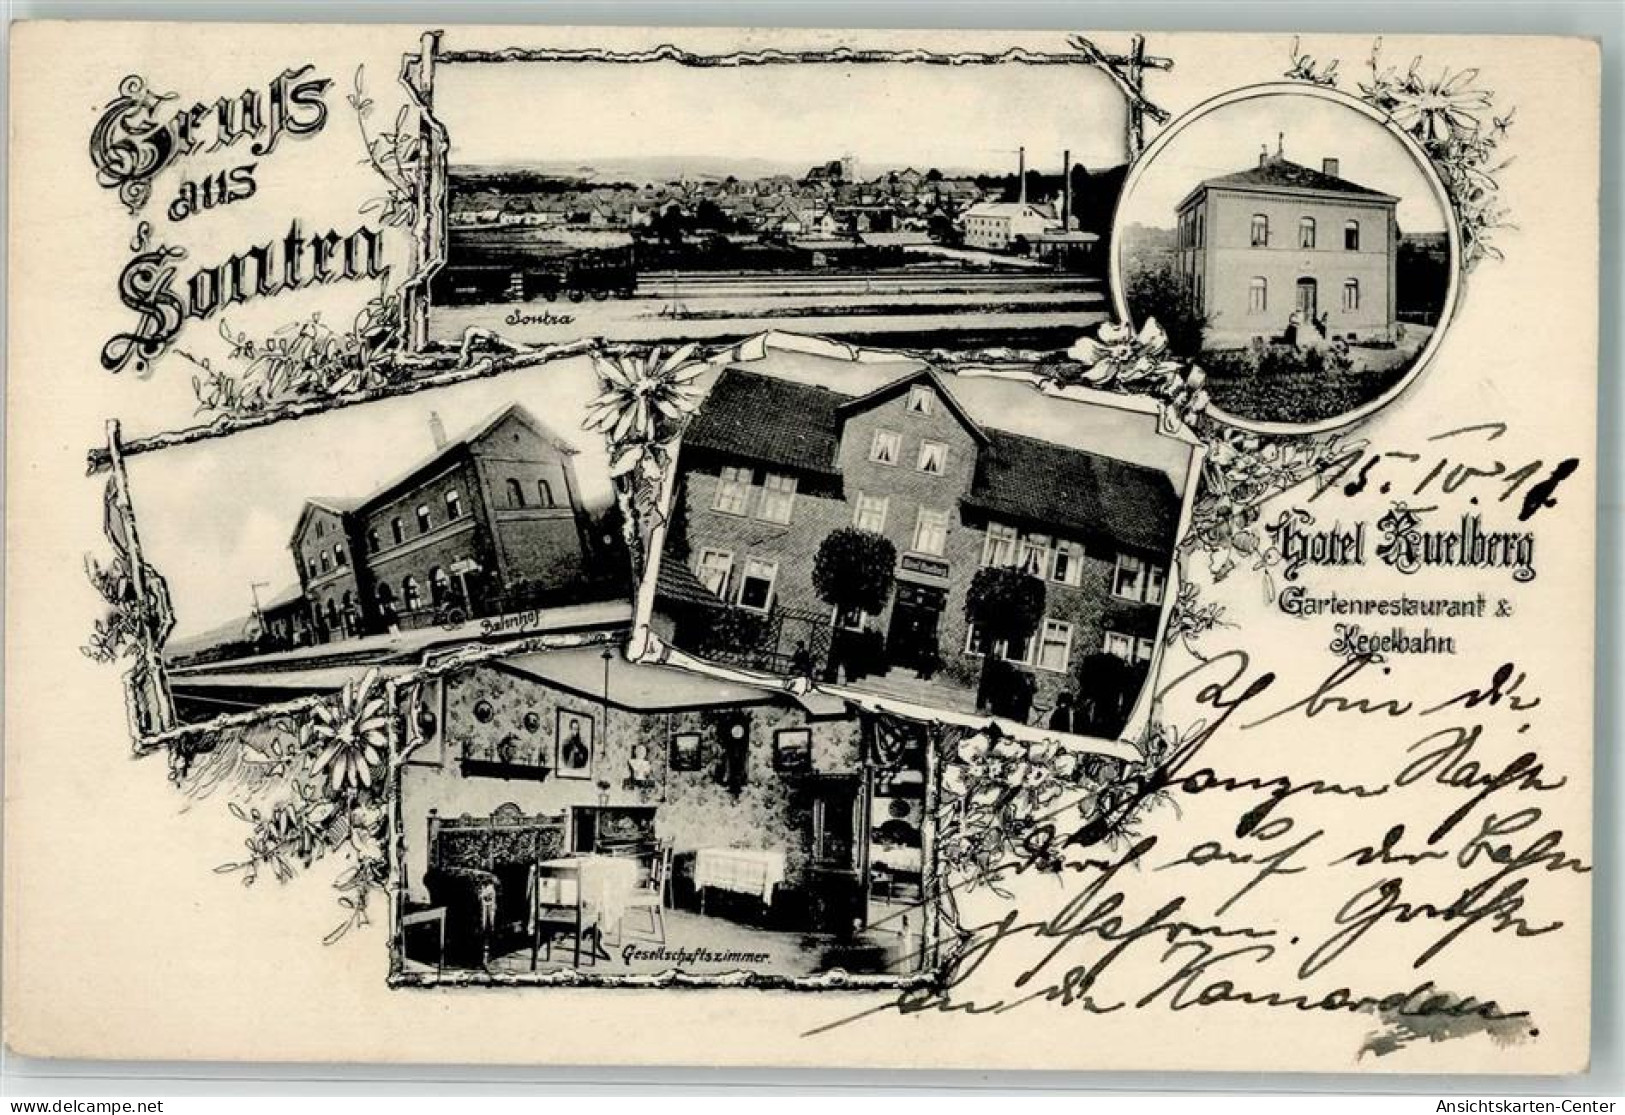 Gruß
aus
Sontra
Sontra
Bahnhof
Gesellschaftszimmer.
15. IV. 17.
Hotel Ruelberg
Gartenrestaurant &
Kegelbahn
Ich bin die
ganzen Nacht
durch auf der Bahn
gefahren. Grüße
an die Kameraden.
delcampe.net
Ansichtskarten-Center